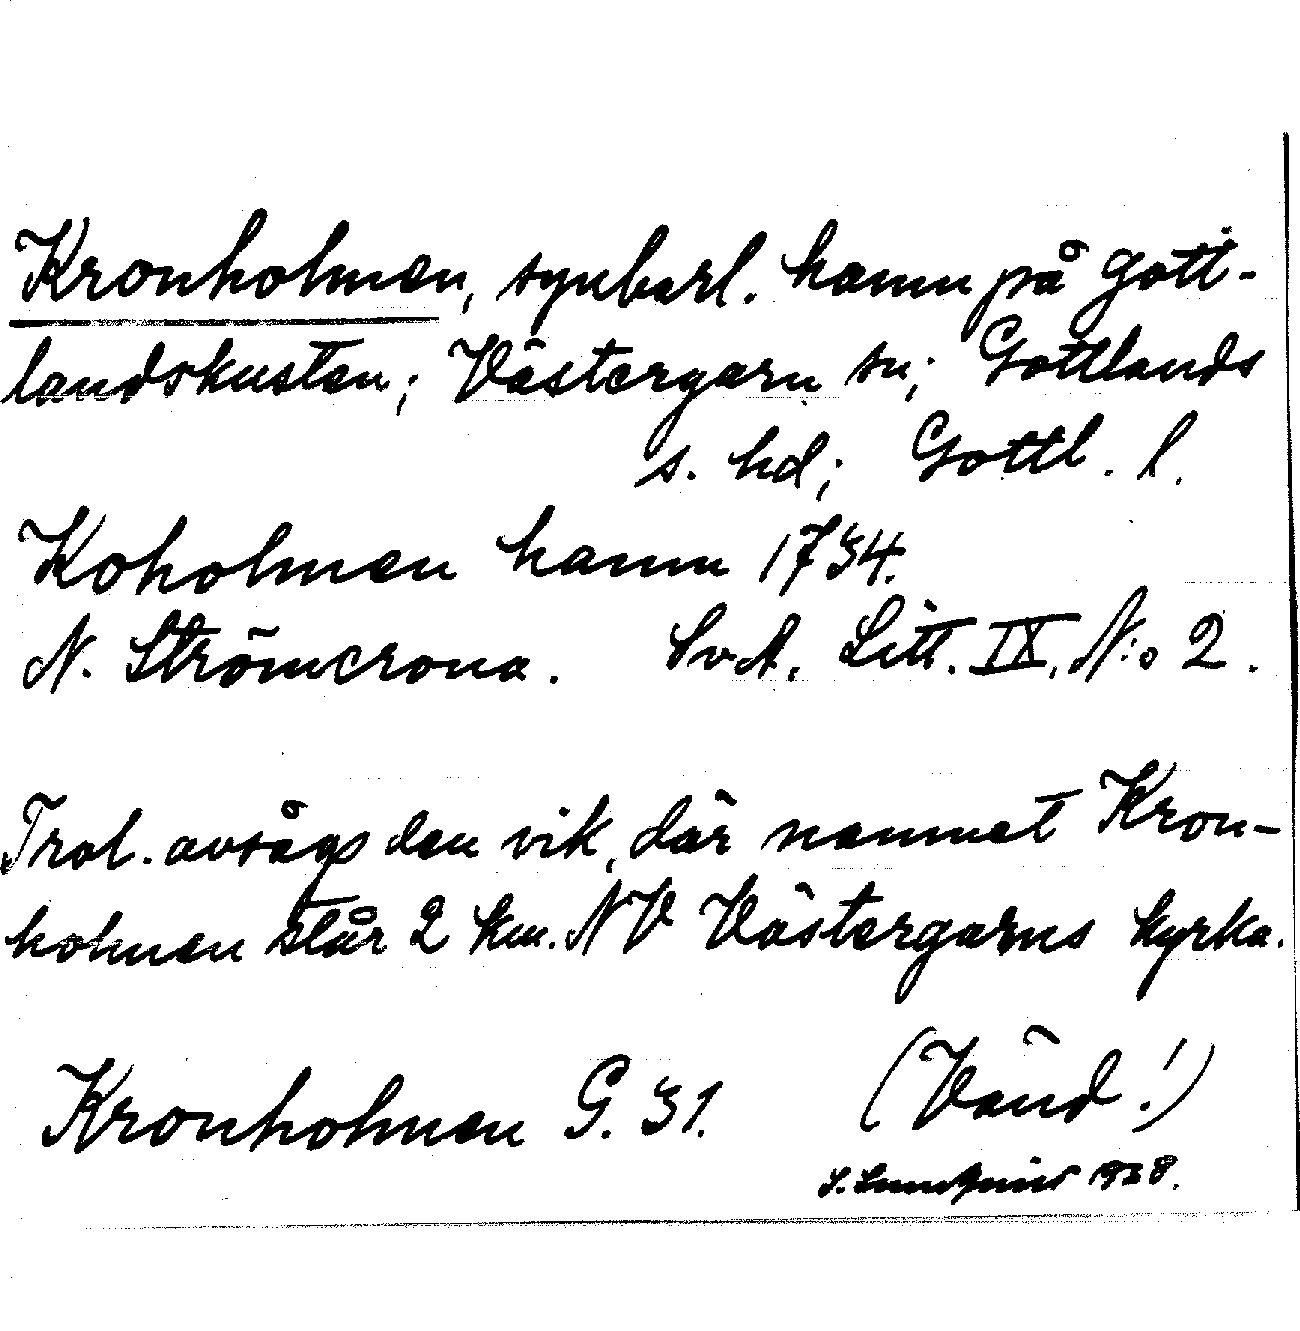 Kronholmen, synbarl. hamn på Gott-
landskusten; Västergarn sn; Gottlands
s. hd; Gottl. l.
Koholmen hamn 1734.
N. Strömcrona. SvA. Litt. IX, N:o 2.
Trol. avsågs den vik, där namnet Kron-
holmen står 2 km. NV Västergarns kyrka.
Kronholmen G. 31. (Vänd!)
S. Lundqvist 1928.